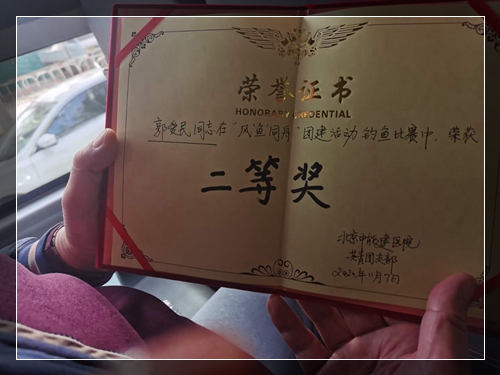 荣誉证书
HONORARY CREDENTIAL
郭爱民同志在"风渔同舟"团建活动钓鱼比赛中，荣获
二等奖
北京中能建医院
共青团支部
2020年11月7日